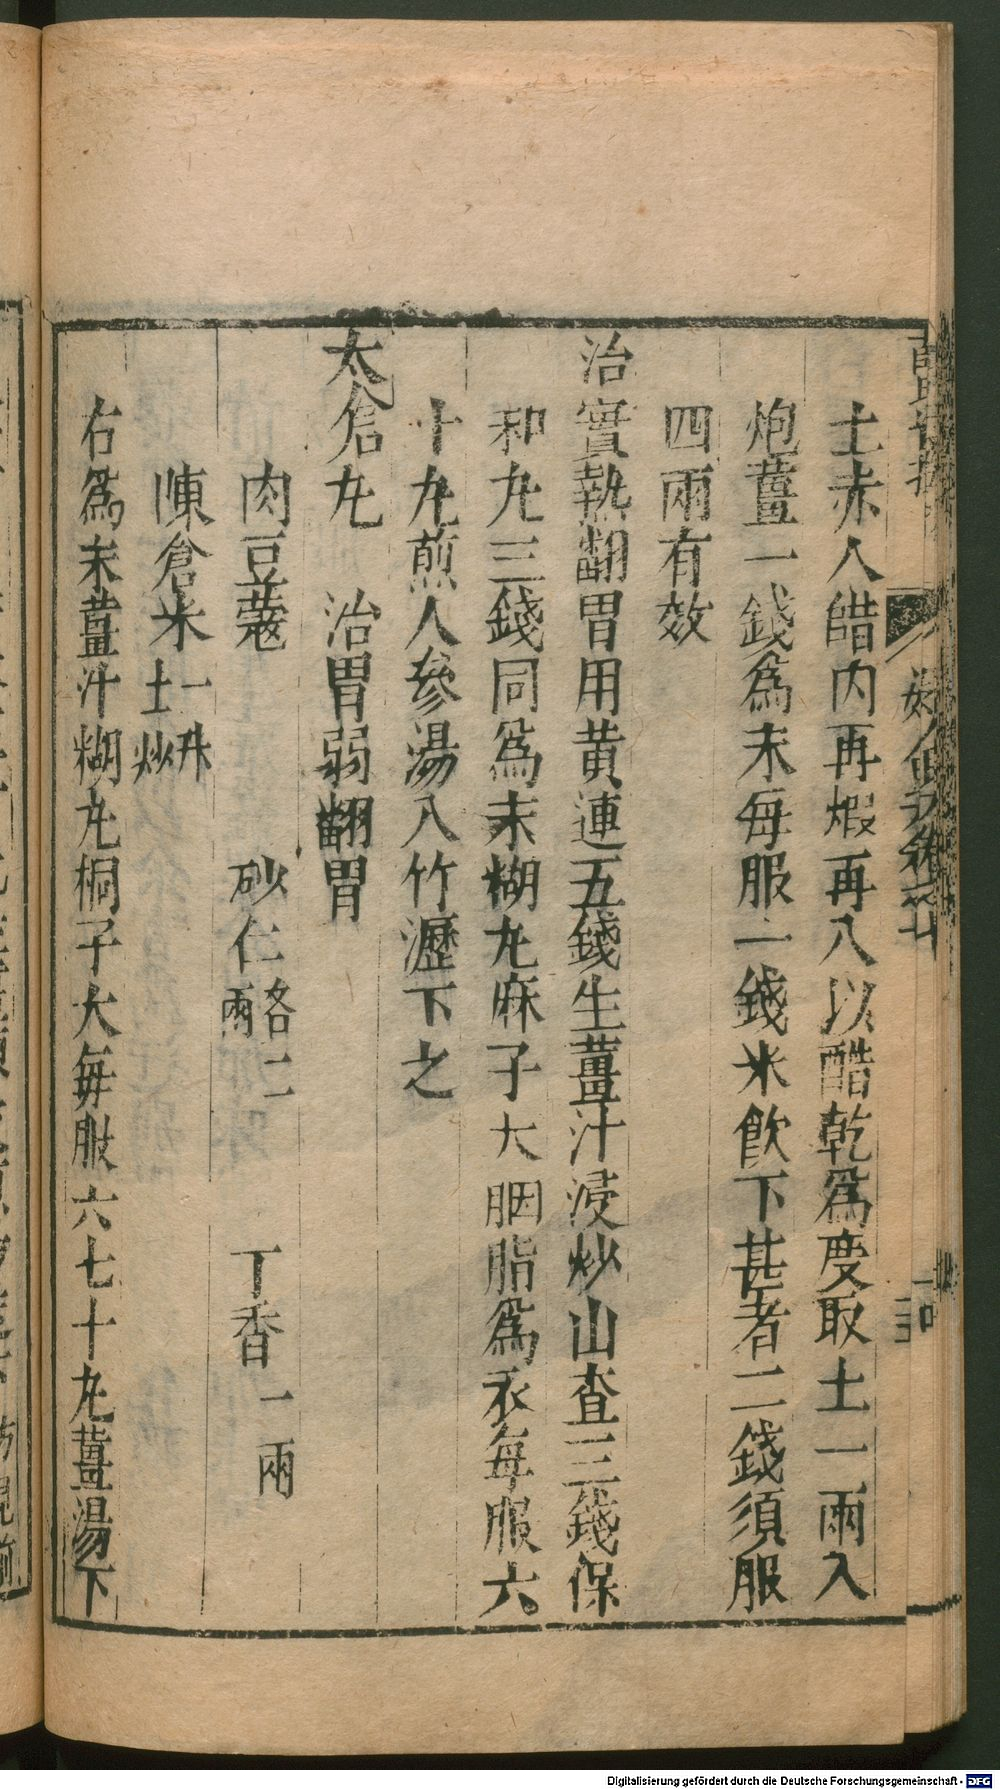 土赤入醋内再煅再入以醋乾爲度取土一兩入
炮薑一錢爲末每服二錢米飮下甚者二錢須服
四兩有效
治實熱翻胃用黄連五錢生薑汁浸炒山査三錢保
和丸三錢同爲末糊丸麻子大胭脂爲衣每服六
十丸煎人參湯入竹瀝下之
太倉丸 治胃弱翻胃
肉豆蔻 砂仁各二兩 丁香一兩
陳倉米一升土炒
右爲末薑汁糊丸桐子大每服六七十丸薑湯下
Digitalisierung gefördert durch die Deutsche Forschungsgemeinschaft - DFG